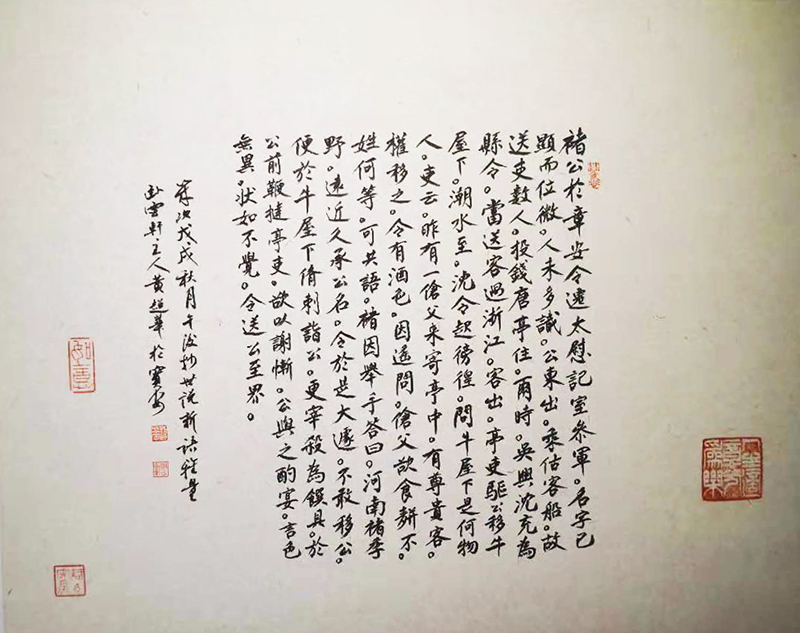 褚公於章安令遷太慰記室參軍。名字已
顯而位微。人未多識。公東出。乘估客船。故
送吏數人。投錢唐亭住。爾時。吳興沈充為
縣令。當送客過浙江。客出。亭吏驅公移牛
屋下。潮水至。沈令起徬徨。問牛屋下是何物
人。吏云。昨有一傖父来寄亭中。有尊貴客。
權移之。令有酒色。因遙問。傖父欲食麩不。
姓何等。可共語。褚因舉手答曰。河南褚季
野。遠近久承公名。令於是大遽。不敢移公。
便於牛屋下脩刺詣公。更宰殺為饌具。於
公前鞭撻亭吏。欲以謝慚。公與之酌宴。言色
無異。狀如不覺。令送公至界。
歲次戊戌秋月午後抄世說新語雅量
雲軒主人黃超華於寶安
如意